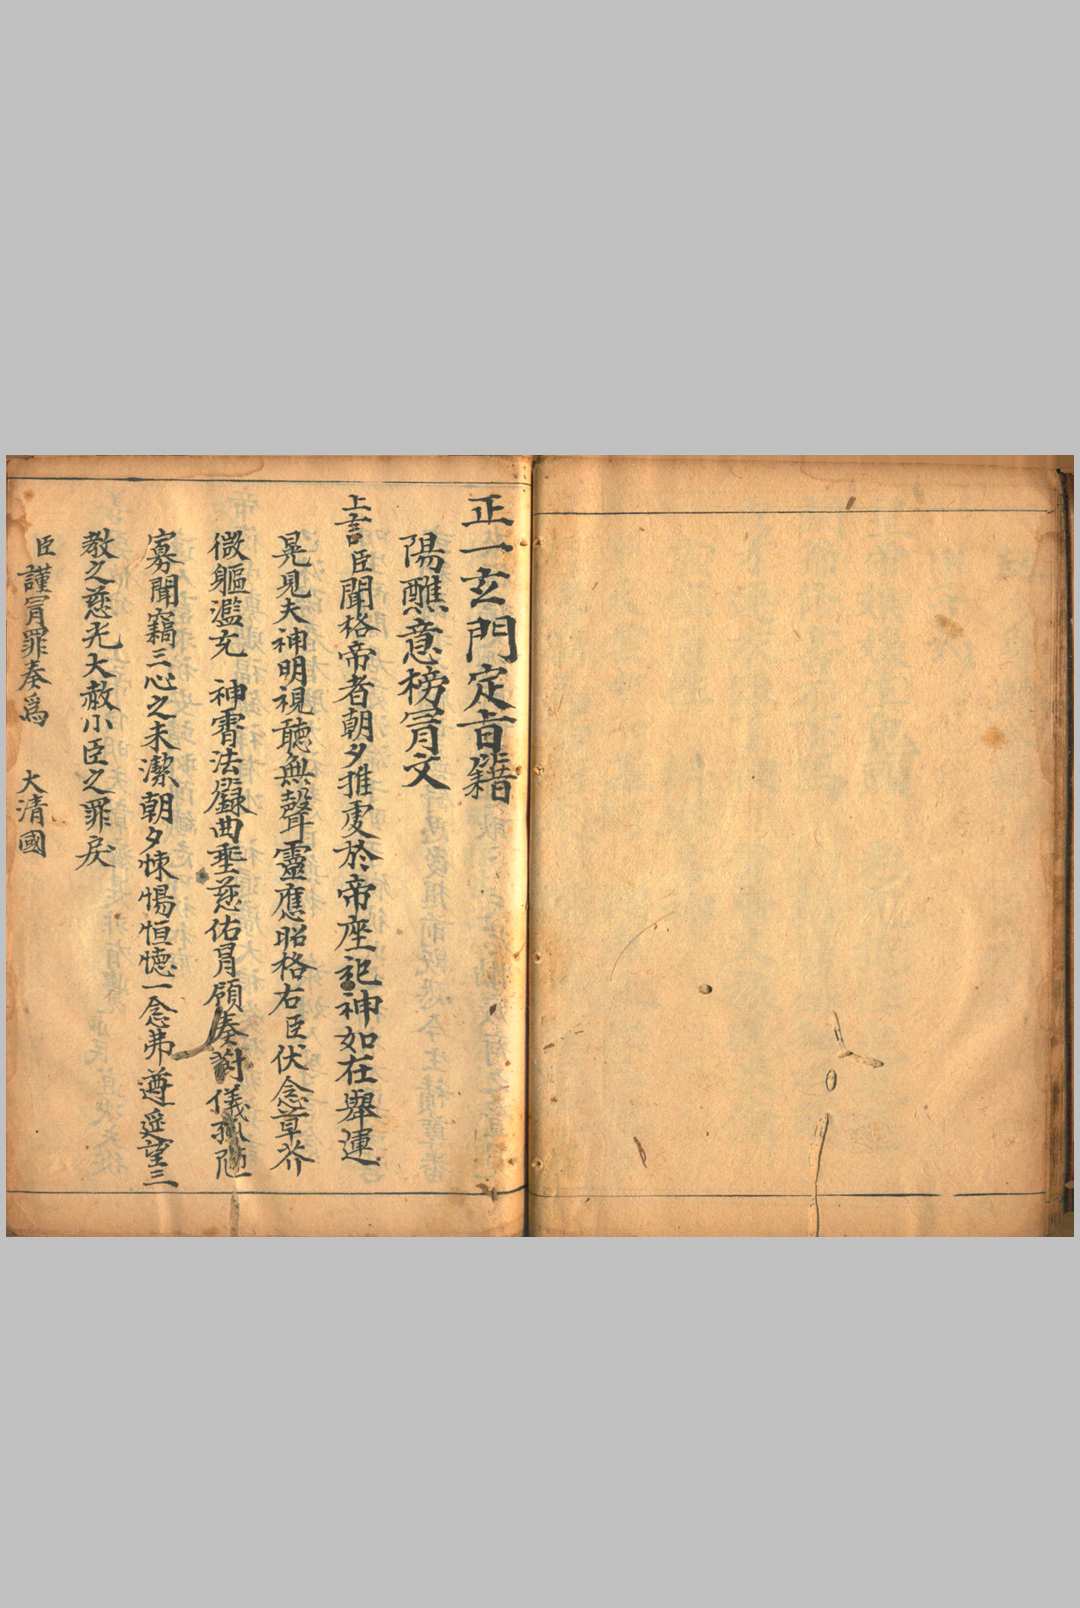 正一玄門定旨籍
陽醮意榜肎文
上言臣聞格帝者朝夕推虔於帝座記神如在舉運
晃見夫神明視聽無聲靈應昭格右臣伏念草芥
微軀濫充 神霄法籙曲垂慈佑肎頋奏謝儀孤陋
寡聞竊三心之未潔朝夕悚惕恒憓一念弗遵遥望三
教之慈尤大赦小臣之罪戾
臣謹肎罪奏爲 大清國